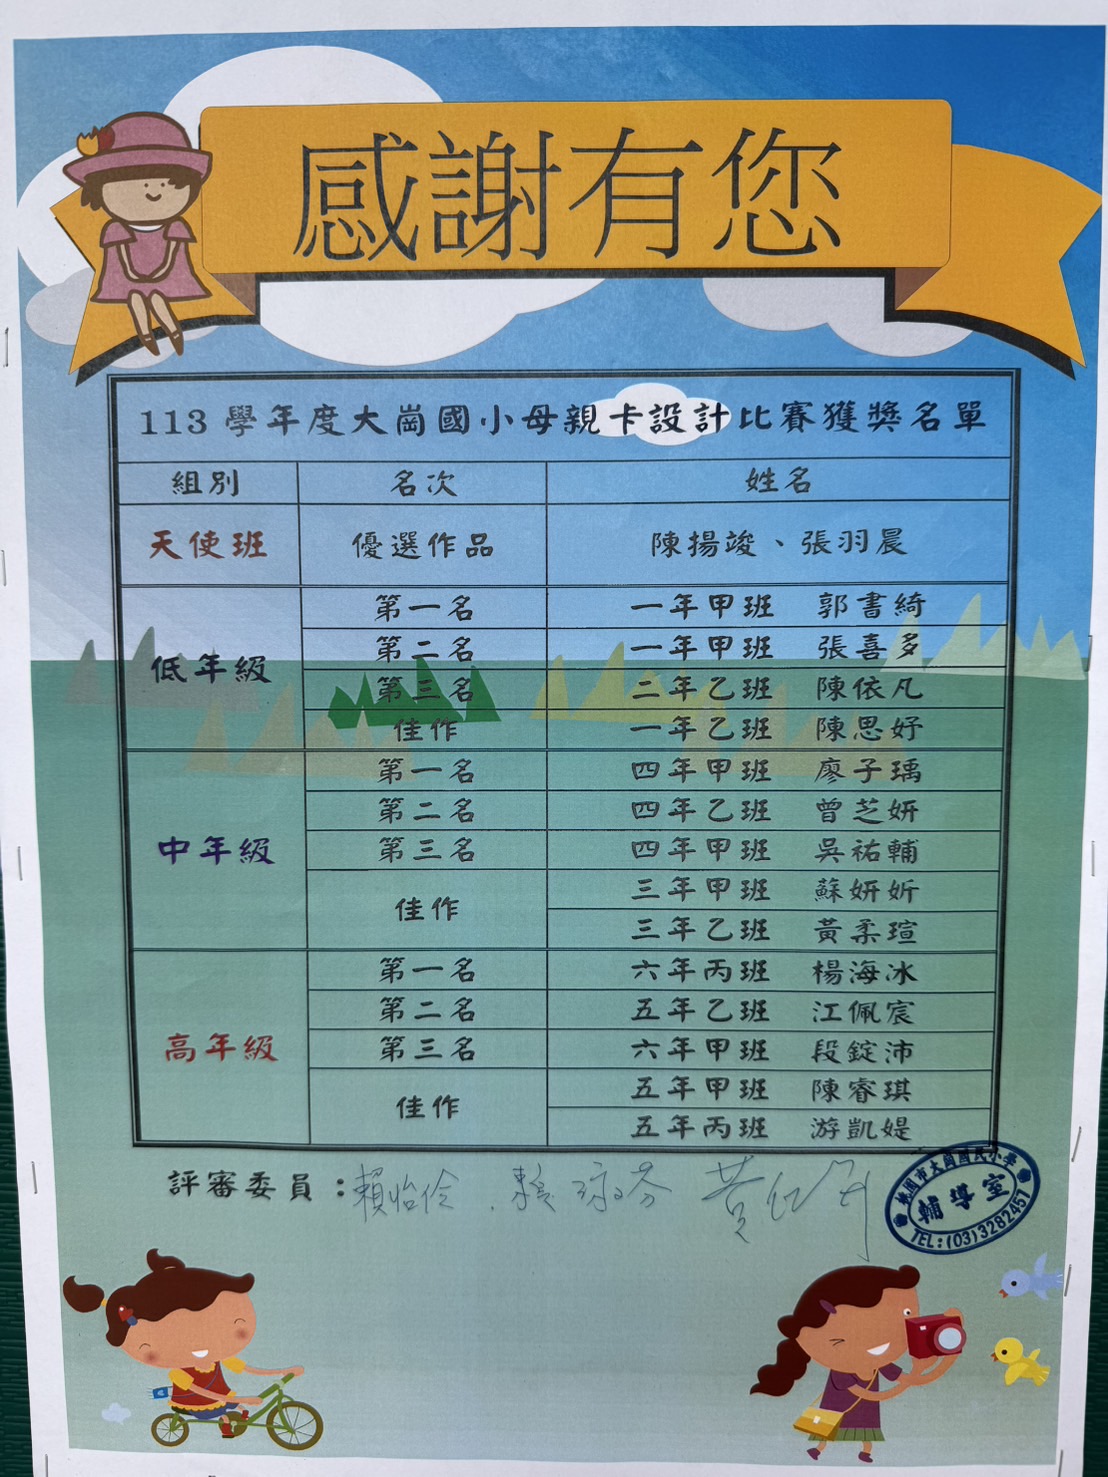 感謝有您
113 學年度大崗國小母親卡設計比賽獲獎名單
組別 名次 姓名
天使班 優選作品 陳揚竣、張羽晨
低年級
第一名 一年甲班 郭書綺
第二名 一年甲班 張喜多
第三名 二年乙班 陳依凡
佳作 一年乙班 陳思妤
中年級
第一名 四年甲班 廖子瑀
第二名 四年乙班 曾芝妍
第三名 四年甲班 吳祐輔
佳作 三年甲班 蘇妍妡
三年乙班 黃柔瑄
高年級
第一名 六年丙班 楊海冰
第二名 五年乙班 江佩宸
第三名 六年甲班 段錠沛
佳作 五年甲班 陳睿琪
五年丙班 游凱媞
評審委員：賴怡伶
桃園市大崗國民小學
輔導室
TEL:(03)3282457